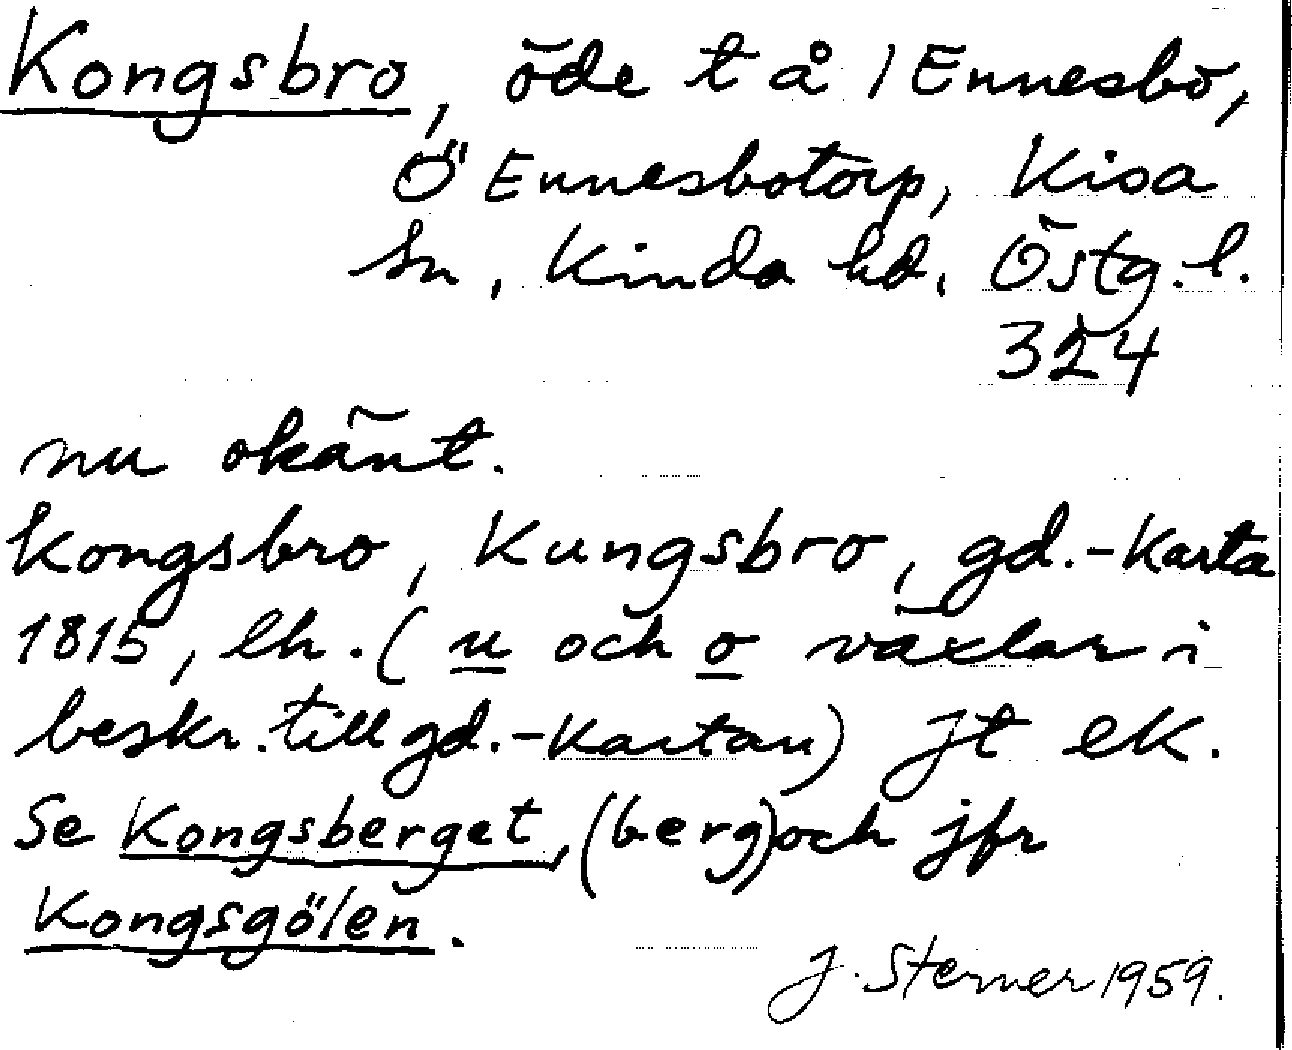 Kongsbro, öde t å 1 Ennesbo,
Ö Ennesbotorp, Kisa
sn, Kinda hd. Östg. l.
324
nu okänt.
Kongsbro, Kungsbro, gd.-karta
1815, lh. (u och o växlar i
beskr. till gd.-kartan) jt ek.
Se Kongsberget, (berg) och jfr
Kongsgölen.
J. Sterner 1959.